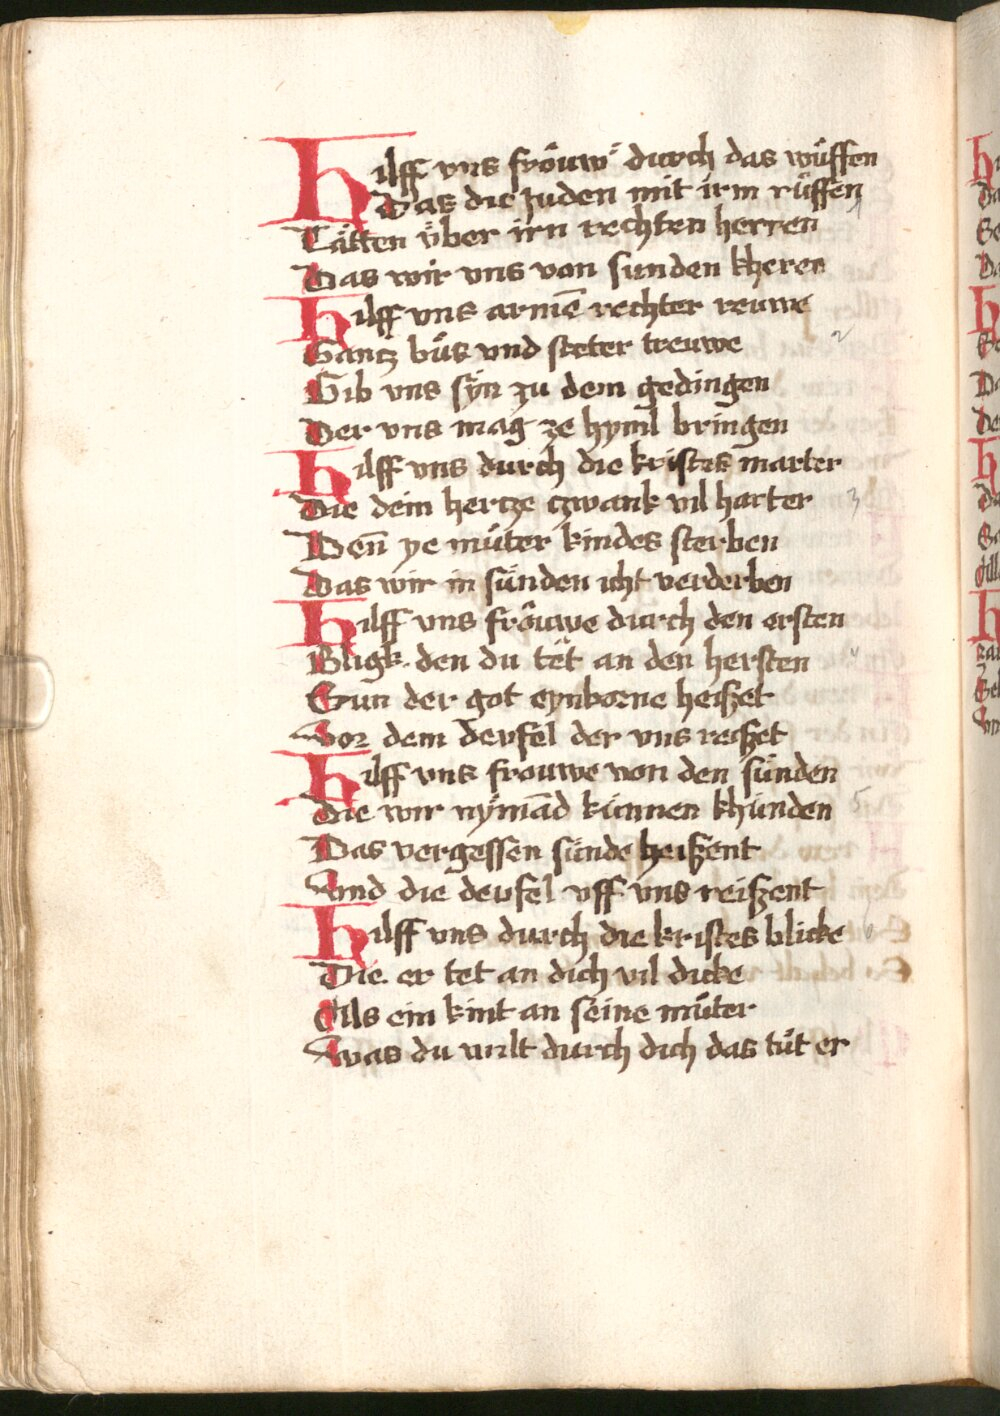 Hilff vns frôuw durch das wüffen
Das die Juden mit irm rüffen
Tätten über irn rechten herren
Das wir vns von sunden kheren
Hilff vns armē rechter reuwe
Gantz büs vnd steter treuwe
Gib vns syn zu dem gedingen
Der vns mag ze hyml bringen
Hilff vns durch die kristes marter
Die dein hertze czwank vil harter
Den̄ ye müter kindes sterben
Das wir in sünden icht verderben
Hilff vns frôuwe durch den ersten
Bligk den du tët an den hersten
Sun der got eynborne heiszet
Vor dem devfel der vns reiszet
Hilff vns frouwe von den sünden
Die wir nymād künnen khünden
Das vergessen sünde heiszent
Vnd die devfel vff vns reiszent
Hilff vns durch die kristes blicke
Die er tet an dich vil dicke
Als ein kint an seine müter
Was du wilt durch dich das tüt er